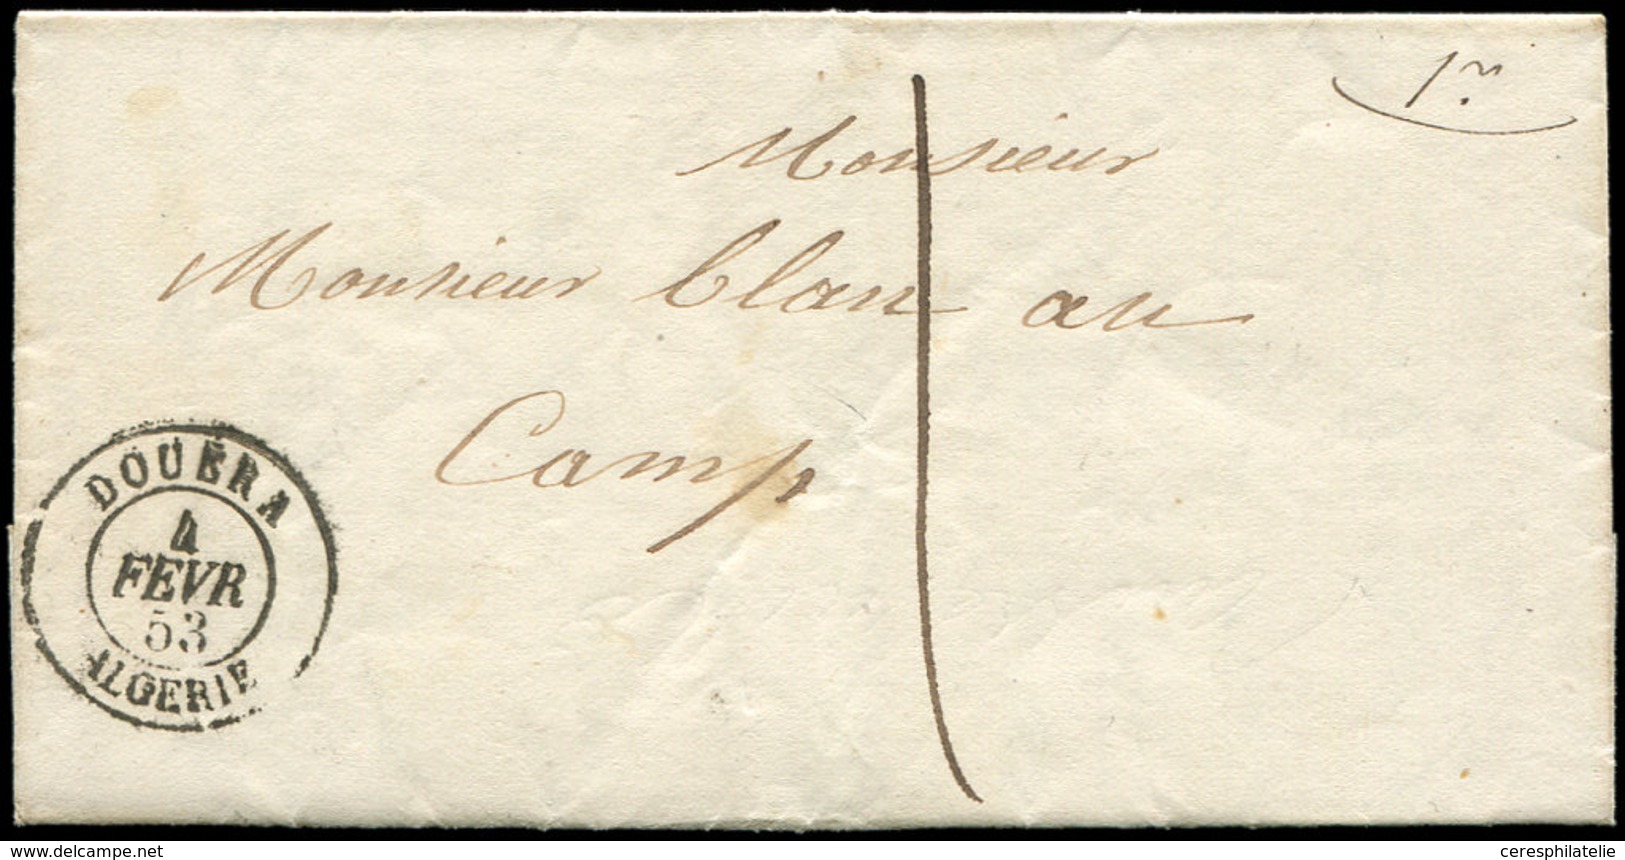 1r.
Monsieur
Monsieur blan au
Camp
DOUÉRA
4
FEVR
53
ALGERIE
www.delcampe.net
ceresphilatelie